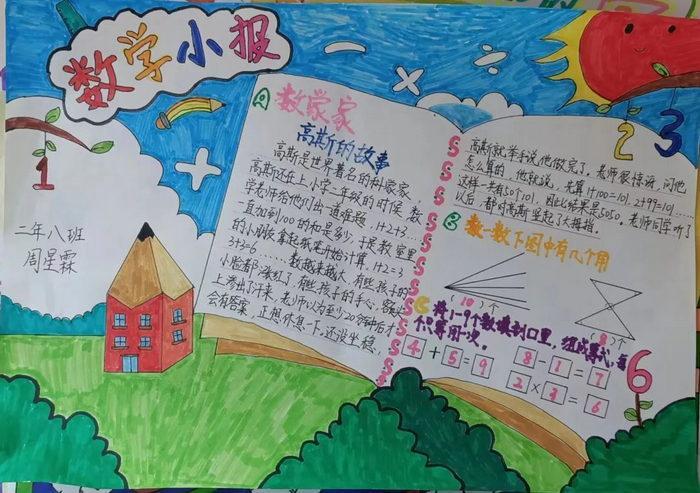 数学小报
1
2
3
二年八班
周星霖
A 数学家
高斯的故事
高斯是世界著名的科学家,
高斯还在上小学二年级的时候,数
学老师给他们出一道难题,1+2+3……
一直加到100的和是多少,于是教室里
的小朋友拿起纸来开始计算,1+2=3
3+3=6……数越来越大,有些孩子的
小脸都涨红了,有些孩子的手心
上渗出了汗来,老师以为至少20分钟后才
会有答案,正想休息一下,还没坐稳,
高斯就举手说他做完了。老师很惊讶,问他
怎么算的,他就说,先算1+100=101,2+99=101……
这样一共有50个101,因此结果是5050。老师同学听了
以后,都对高斯竖起了大拇指。
B 数一数下图中有几个角
(10)个
(8)个
C 将1-9个数填到口里,组成算式,每
个只等用一次。
4+5=9
8-1=7
2×3=6
6